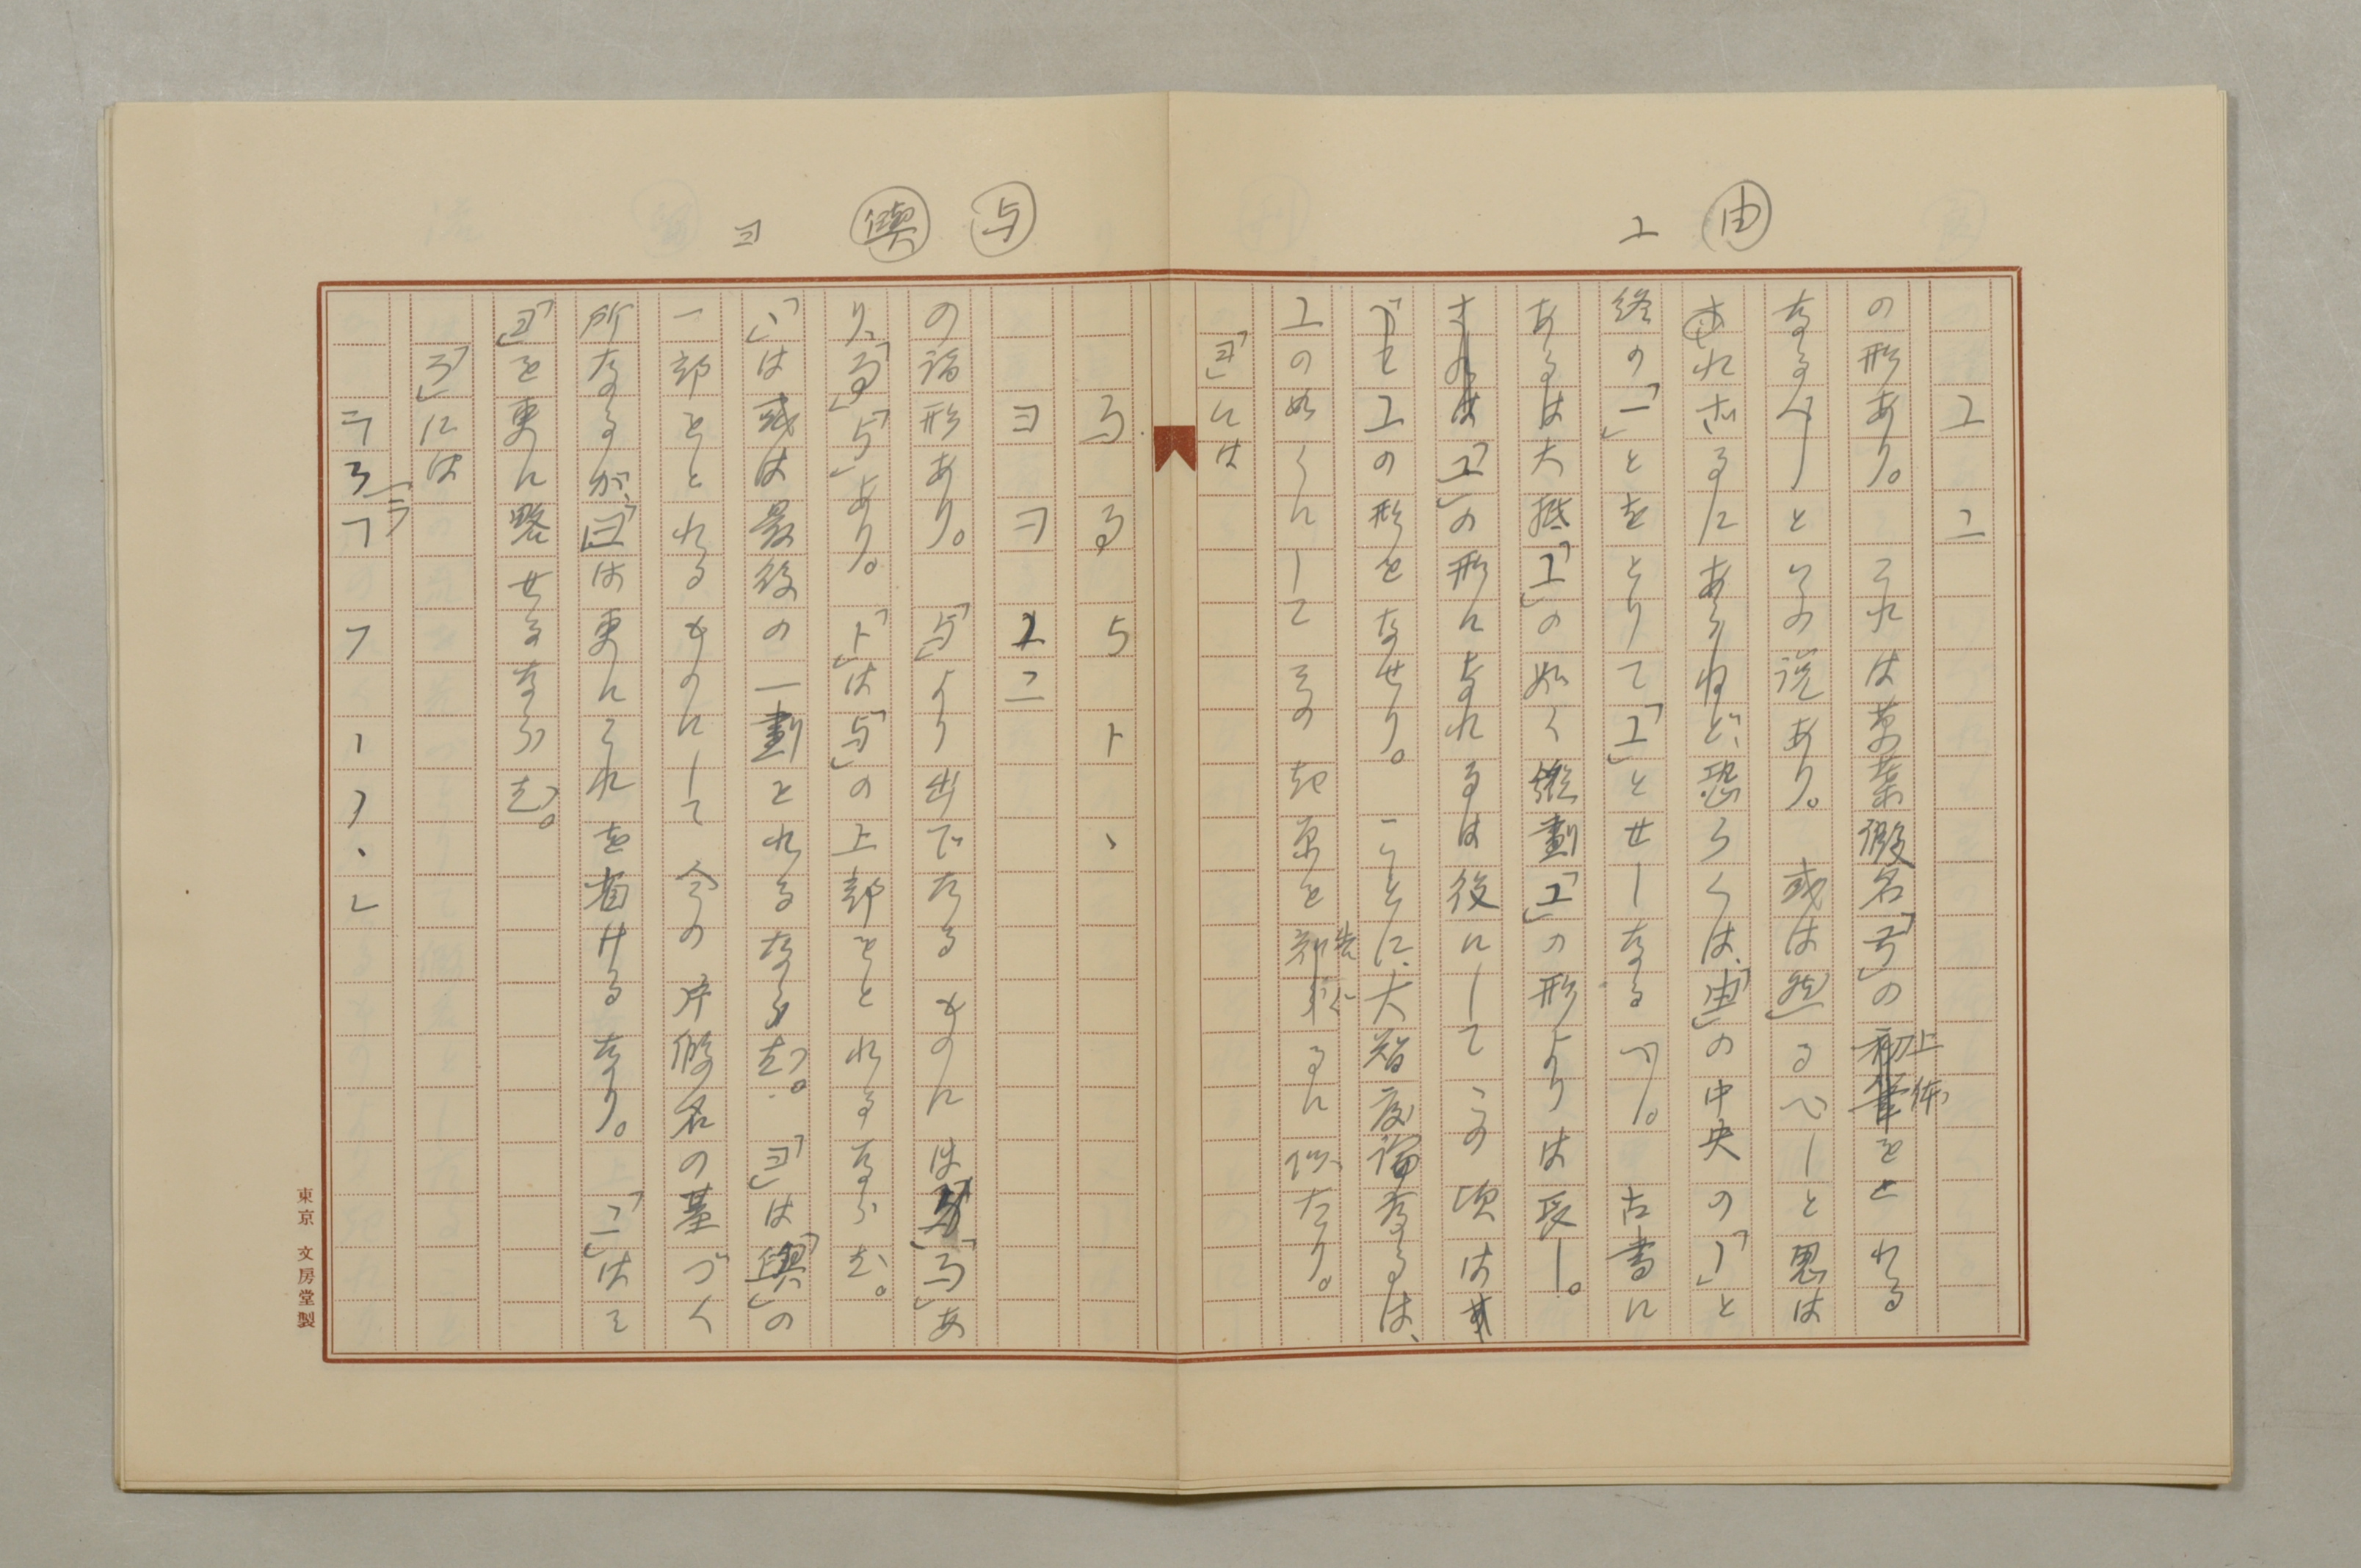 由
ユ
ユ ユ
の形あり。これは萬葉假名「弓」の上体をとれる
なるべしといふの説あり。或は然るべしと思は
れざるにあらねど、恐らくは、「由」の中央の「丨」と
終の「一」とをとりて「ユ」とせしなるべし。古書に
あるは大抵「ユ」の如く縱劃「ユ」の形よりは長し。
「ユ」の形になれるは後にしてこの頃は
ユの形をなせり。ことに、大智度論なるは、
ユの如くにしてその起原を告ぐるに似たり。
「ヨ」には
与
輿
ヨ
与
ヨ ヨ ユ ニ
の諸形あり。「与」より出でたるものには「」あ
り、「」「与」あり。「ト」は「与」の上部をとれるならむ。
「、」は或は最後の一劃をとれるならむ。「ヨ」は「輿」の
一部をとれるものにして今の片假名の基づく
所なるが、「」は更にこれを省ける なり。「ニ」はこ
「ヨ」を更に略せるならむ。
「ラ」には
ラ ろ フ フ 丨 フ 、 レ
東京 文房堂製